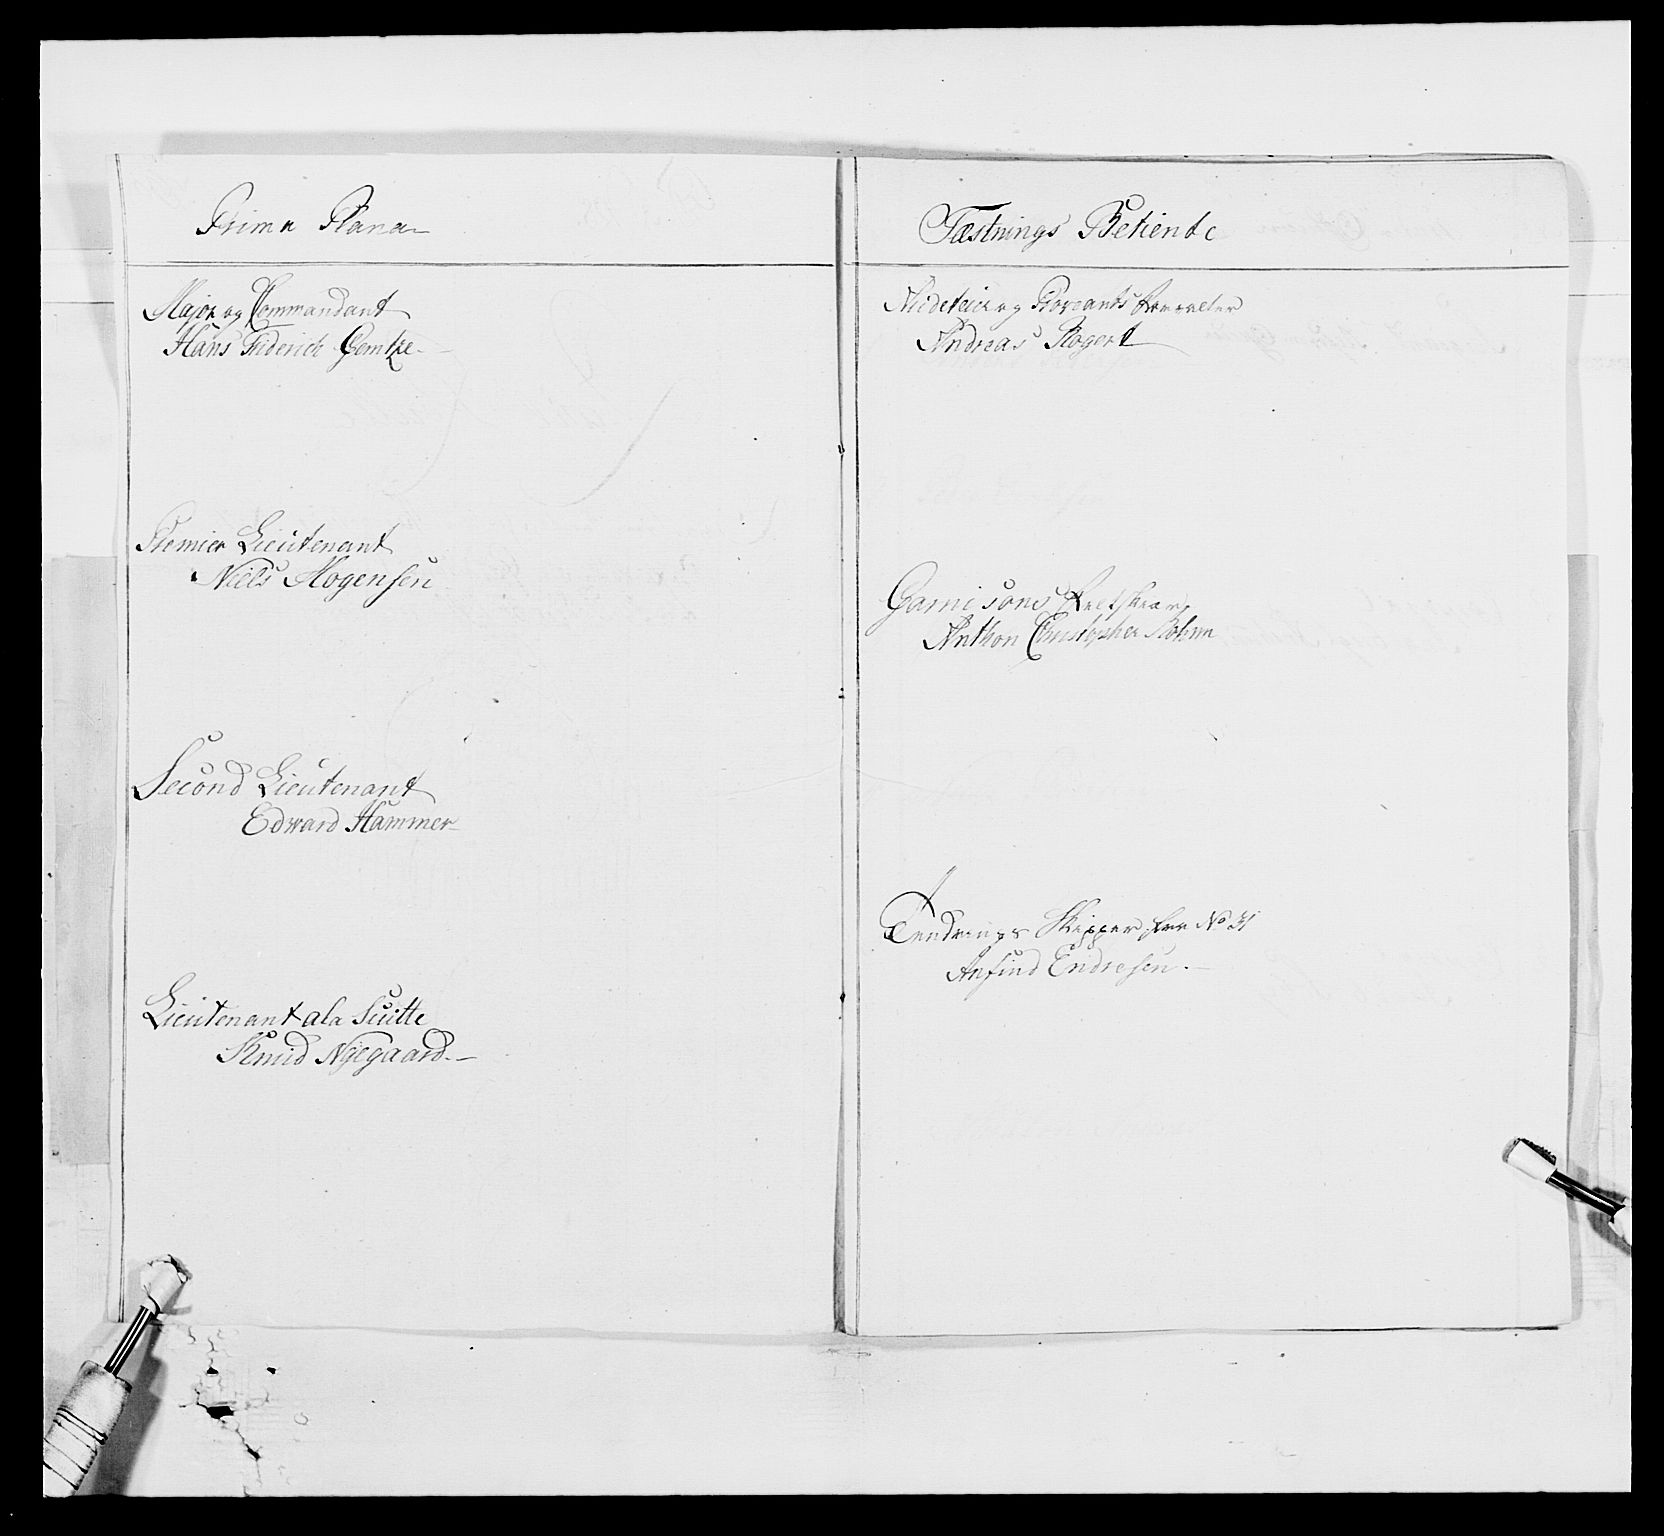 Prima Plana
Major og Commandant
Hans Friderich Gemtze
Premier Lieutenant
Niels Mogensen
Second Lieutenant
Edward Hammer
Lieutenant ala Suitte
Knud Nÿegaard
Fæstnings Betiente
og Proviants forvalter
Andreas Rogert
Garnisons
Anthon Christopher Böhm
Skipper fra No 31
Anfind Endresen